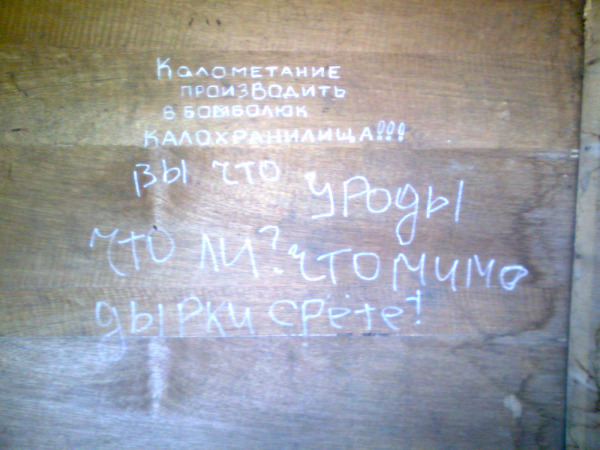 Калометание
производить
в бомболюк
калохранилища!!!
вы что уроды
что ли? что мимо
дырки срёте!